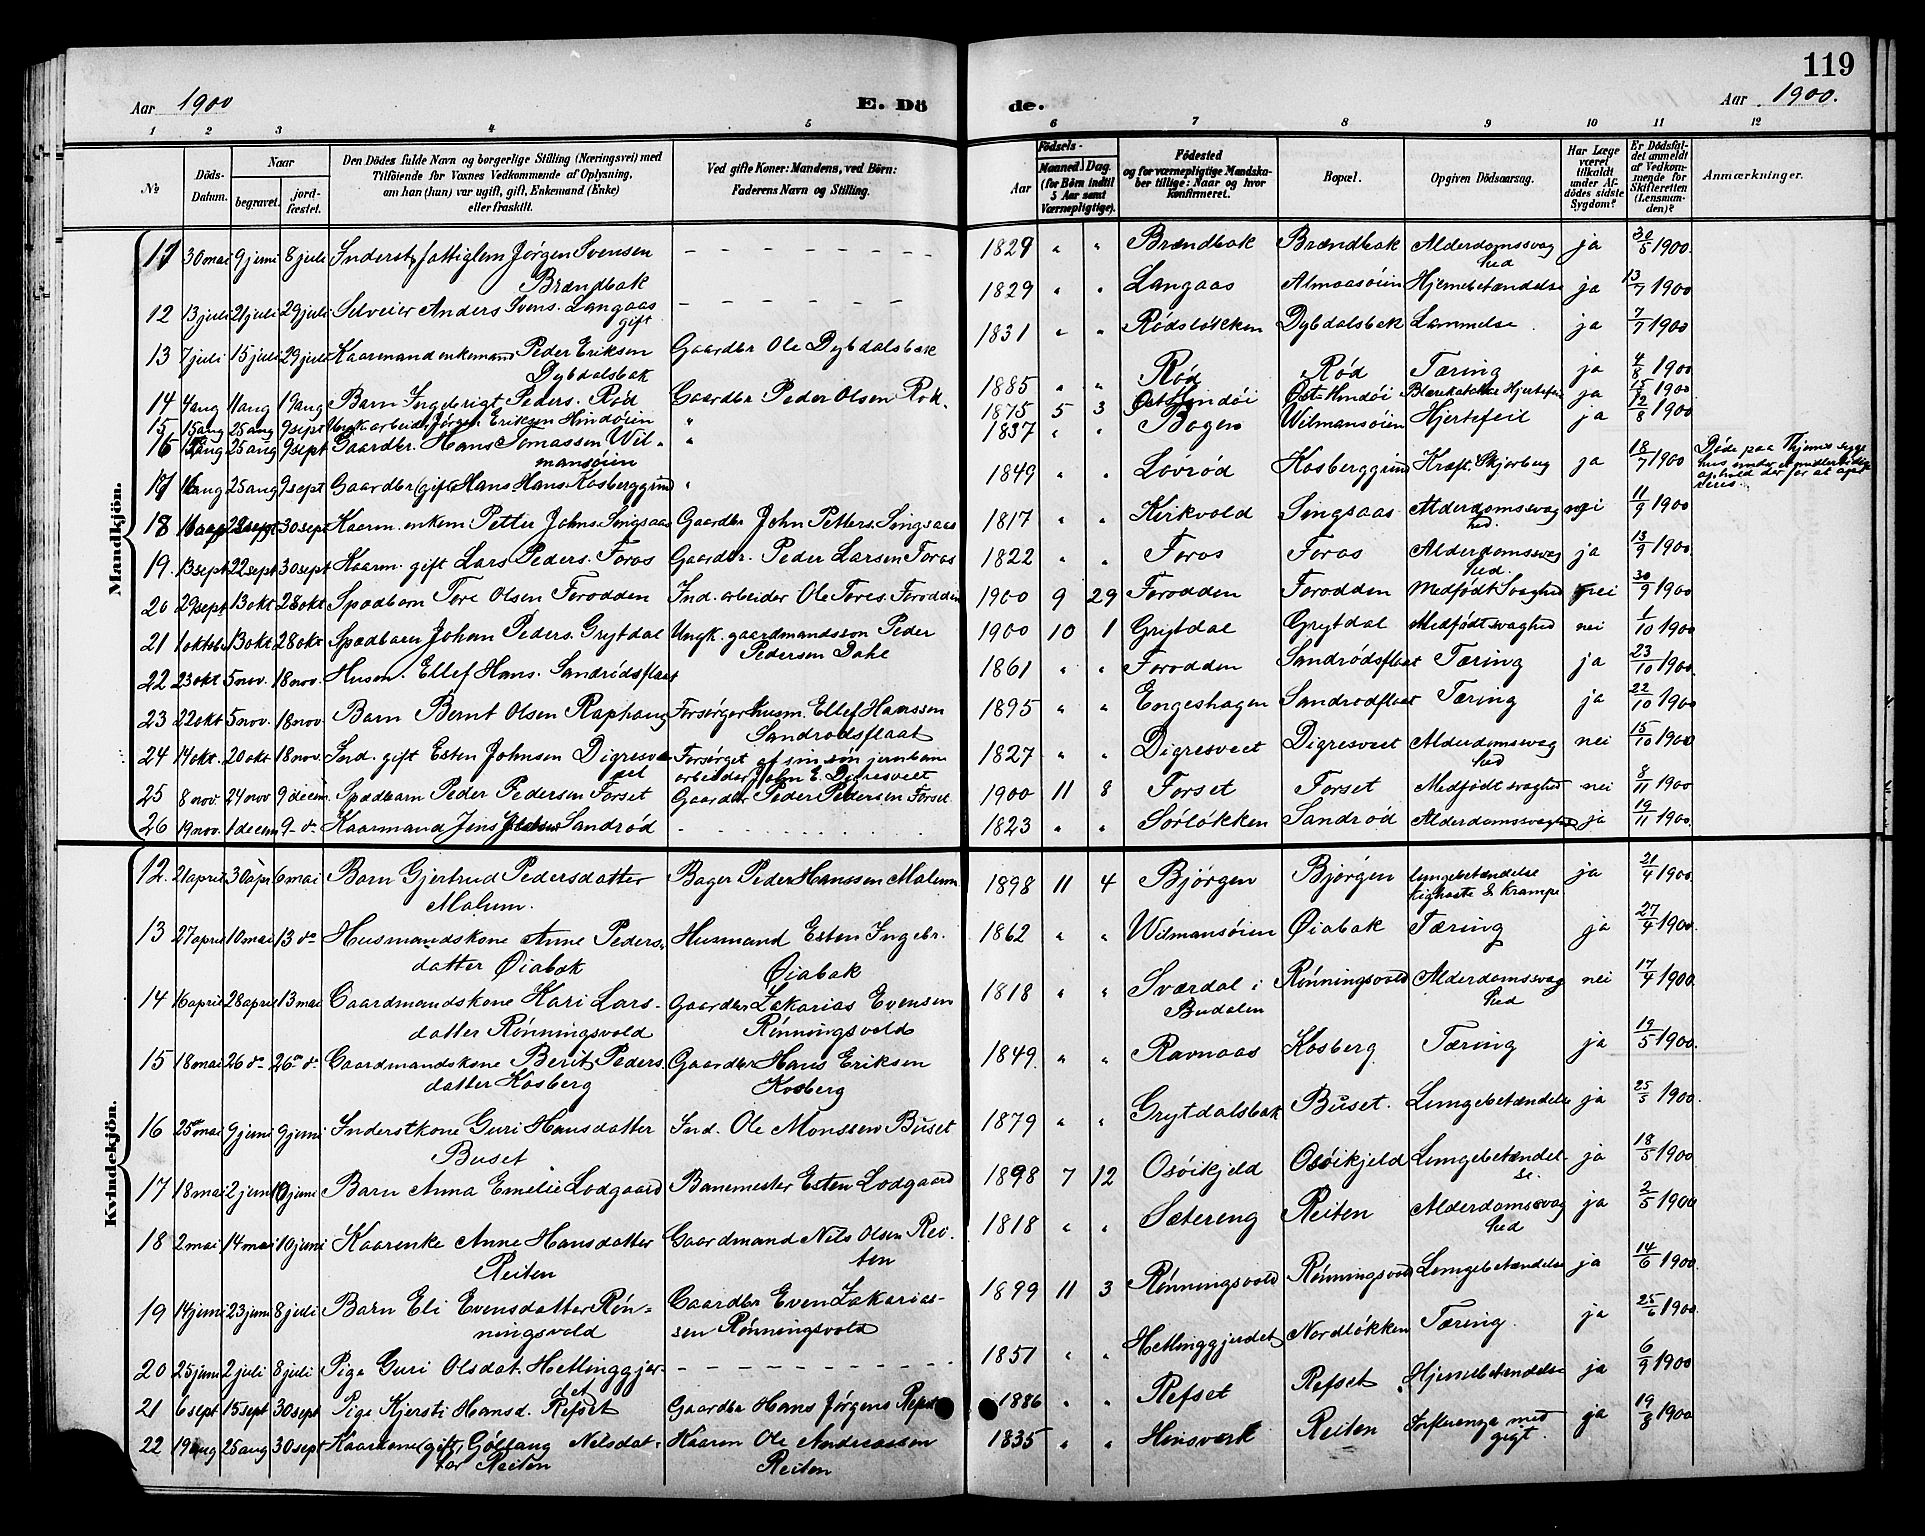 119
Aar 1900
E. Dö
de.
Aar 1900.
1 2 3 4 5 6 7 8 9 10 11 12
№
Döds-Datum.
Naar
begravet.
jord-fæstet.
Den Dödes fulde Navn og borgerlige Stilling (Næringsvei) med
Tilföiende for Voxnes Vedkommende af Oplysning,
om han (hun) var ugift, gift, Enkemand (Enke)
eller fraskilt.
Ved gifte Koner: Mandens, ved Börn:
Faderens Navn og Stilling.
Födsels-
Aar
Maaned. Dag.
(for Börn indtil
5 Aar samt
Værnepligtige).
Födested
og for værnepligtige Mandska-
ber tillige: Naar og hvor
konfirmeret.
Bopæl.
Opgiven Dödsaarsag.
Har Læge
været
tilkaldt
under Af-
dödes sidste
Sygdom?
Er Dödsfal-
det anmeldt
af Vedkom-
mende for
Skifteretten
(Lensman-
den)?
Anmærkninger.
Mandkjön.
11 30 mai 9 juni 8 juli Inderst, fattiglem Jørgen Svensen Brændbak - - - 1829 " " Brændbak Brændbak Alderdomssvaghed ja 30/5 1900.
12 13 juli 21 juli 29 juli Selveier Anders Svens. Langaas gift - - - 1829 " " Langaas Almaasöien Hjernebetændelse ja 13/7 1900
13 7 juli 15 juli 29 juli Kaarmand enkemand Peder Eriksen Dybdalsbak Gaardbr Ole Dybdalsbak 1831 " " Rødsløkken Dybdalsbak Lammelse ja 7/7 1900
14 4 aug 11 aug 19 aug Barn Ingebrigt Peders. Rød Gaardbr Peder Olsen Rød. 1885 " " Rød Rød Tæring ja 4/8 1900
15 15 aug 25 aug 9 sept Ungk. arbeid. Jørgen Eriksen Hindöien " 1875 5 3 Øst-Hindöi Hjertefeil ja 15/8 1900
16 12 aug 25 aug 9 sept Gaardbr. Hans Tomassen Wilmansöien " 1837 " " Bogen Wilmansöien Hjertefeil ja 12/8 1900
17 aug 25 aug 9 sept Gaardbr (gift) Hans Hans. Kosberggrind " 1849 " " Lövrød Kosberggrind Kræft. ja 18/7 1900 Døde paa
18 22 sept 30 sept Kaarm. enkem. Petter Johns. Singsaas Gaardbr John Petters. Singsaas 1817 " " Kirkvold Singsaas Alderdomssvaghed. nei 11/9 1900
19. 13 sept 22 sept 30 sept Kaarm. gift Lars Peders. Foros Gaardbr. Peder Larsen Foros 1822 " " Foros Foros Alderdomssvaghed. ja 13/9 1900.
20 29 sept 13 okt 28 okt Spædbarn Tore Olsen Forodden Ind. arbeider Ole Tores. Forodden 1900 9 29 Forodden Forodden Medfödt Svaghed nei 30/9 1900
21 1 oktober 13 okt 28 okt Spædbarn Johan Peders. Grytdal Ungk. gaardmandssøn Peder Pedersen Dahl 1900 10 1 Grytdal Grytdal Medfödt svaghed nei 1/10 1900
22 23 okt 5 nov. 18 nov. Husm. Ellef Hans. Sandrødsflaat 1861 " " Forodden Sandrødsflaat Tæring ja 23/10 1900
23 22 okt 5 nov. 18 nov. Barn Bernt Olsen Raphaug Forsörger husm. Ellef Hanssen Sandrødsflaat 1895 " " Engeshagen Sandrødflaat Tæring ja 22/10 1900
24 14 okt. 20 okt 18 nov. Ind. gift Esten Johnsen Digresveet Forsörget af sin sön jernbanearbeider John E. Digresveet 1827 " " Digresveet Digresveet Alderdomssvaghed nei 15/10 1900
25 8 nov. 24 nov 9 decem Spædbarn Peder Pedersen Forset Gaardbr Peder Pedersen Forset. 1900 11 8 Forset Forset Medfödt svaghed nei 8/11 1900
26 19 nov. 1 decem 9 do Kaarmand Jens Sandrød - - - 1823 " " Sørløkken Sandrød Alderdomssvaghed ja 19/11 1900.
Kvindekjön.
12. 21 april 30 apr 6 mai Barn Gjertrud Pedersdatter Malum. Bager Peder Hanssen Malum 1898 11 4 Bjørgen Bjørgen Lungebetændelse kighoste & Krampe ja 21/4 1900
13 27 april 10 mai 13 do Husmandskone Anne Pedersdatter Øiabak Husmand Esten Ingebr. Øiabak 1862 " " Wilmansöien Øiabak Tæring ja 27/4 1900.
14 16 april 28 april 13 mai Gaardmandskone Kari Larsdatter Rønningsvold Gaardbr Zakarias Evensen Rønningsvold 1818 " " Sværdal i Budalen Rønningsvold Alderdomssvaghed nei 17/4 1900.
15 18 mai 26 do 26 do Gaardmandskone Berit Pedersdatter Kosberg Gaardbr Hans Eriksen Kosberg 1849. " " Ravnaas Kosberg Tæring ja 19/5 1900.
16 25 mai 9 juni 9 juni Inderstkone Guri Hansdatter Buset Ind. Ole Monssen Buset 1879 " " Grytdalsbak Buset. Lungebetændelse ja 25/5 1900.
17 18 mai 2 juni 10 juni Barn Anna Emelie Lodgaard Banemester Esten Lodgaard 1898 7 12 Osöikjeld Osöikjeld Lungebetændelse. ja 18/5 1900
18 2 mai 14 mai 10 juni Kaarenke Anne Hansdatter Reiten Gaardmand Nils Olsen Reiten 1818 " " Sætereng Reiten Alderdomssvaghed ja 2/5 1900
19 14 juni 23 juni 8 juli Barn Eli Evensdatter Rønningsvold Gaardbr Even Zakariassen Rønningsvold 1899 11 3 Rønningsvold Rønningsvold Lungebetændelse ja 14/6 1900
20 25 juni 2 juli 8 juli Pige Guri Olsdat. Hetlinggjerdet - - - 1851 " " Hetlinggjerdet Nordløkken Tæring. ja 25/6 1900
21 6 sept 15 sept 30 sept Pige Kjersti Hansd. Refset Gaardbr Hans Jørgens. Refset 1886 " " Refset Refset Hjernebetændelse ja 6/9 1900
22 19 aug 25 aug 30 sept Kaarkone (gift) Göllaug Nilsdatter Reiten Kaarm Ole Andreassen Reiten 1835 " " Hinsverk Reiten Influenza med gigt. ja 19/8 1900